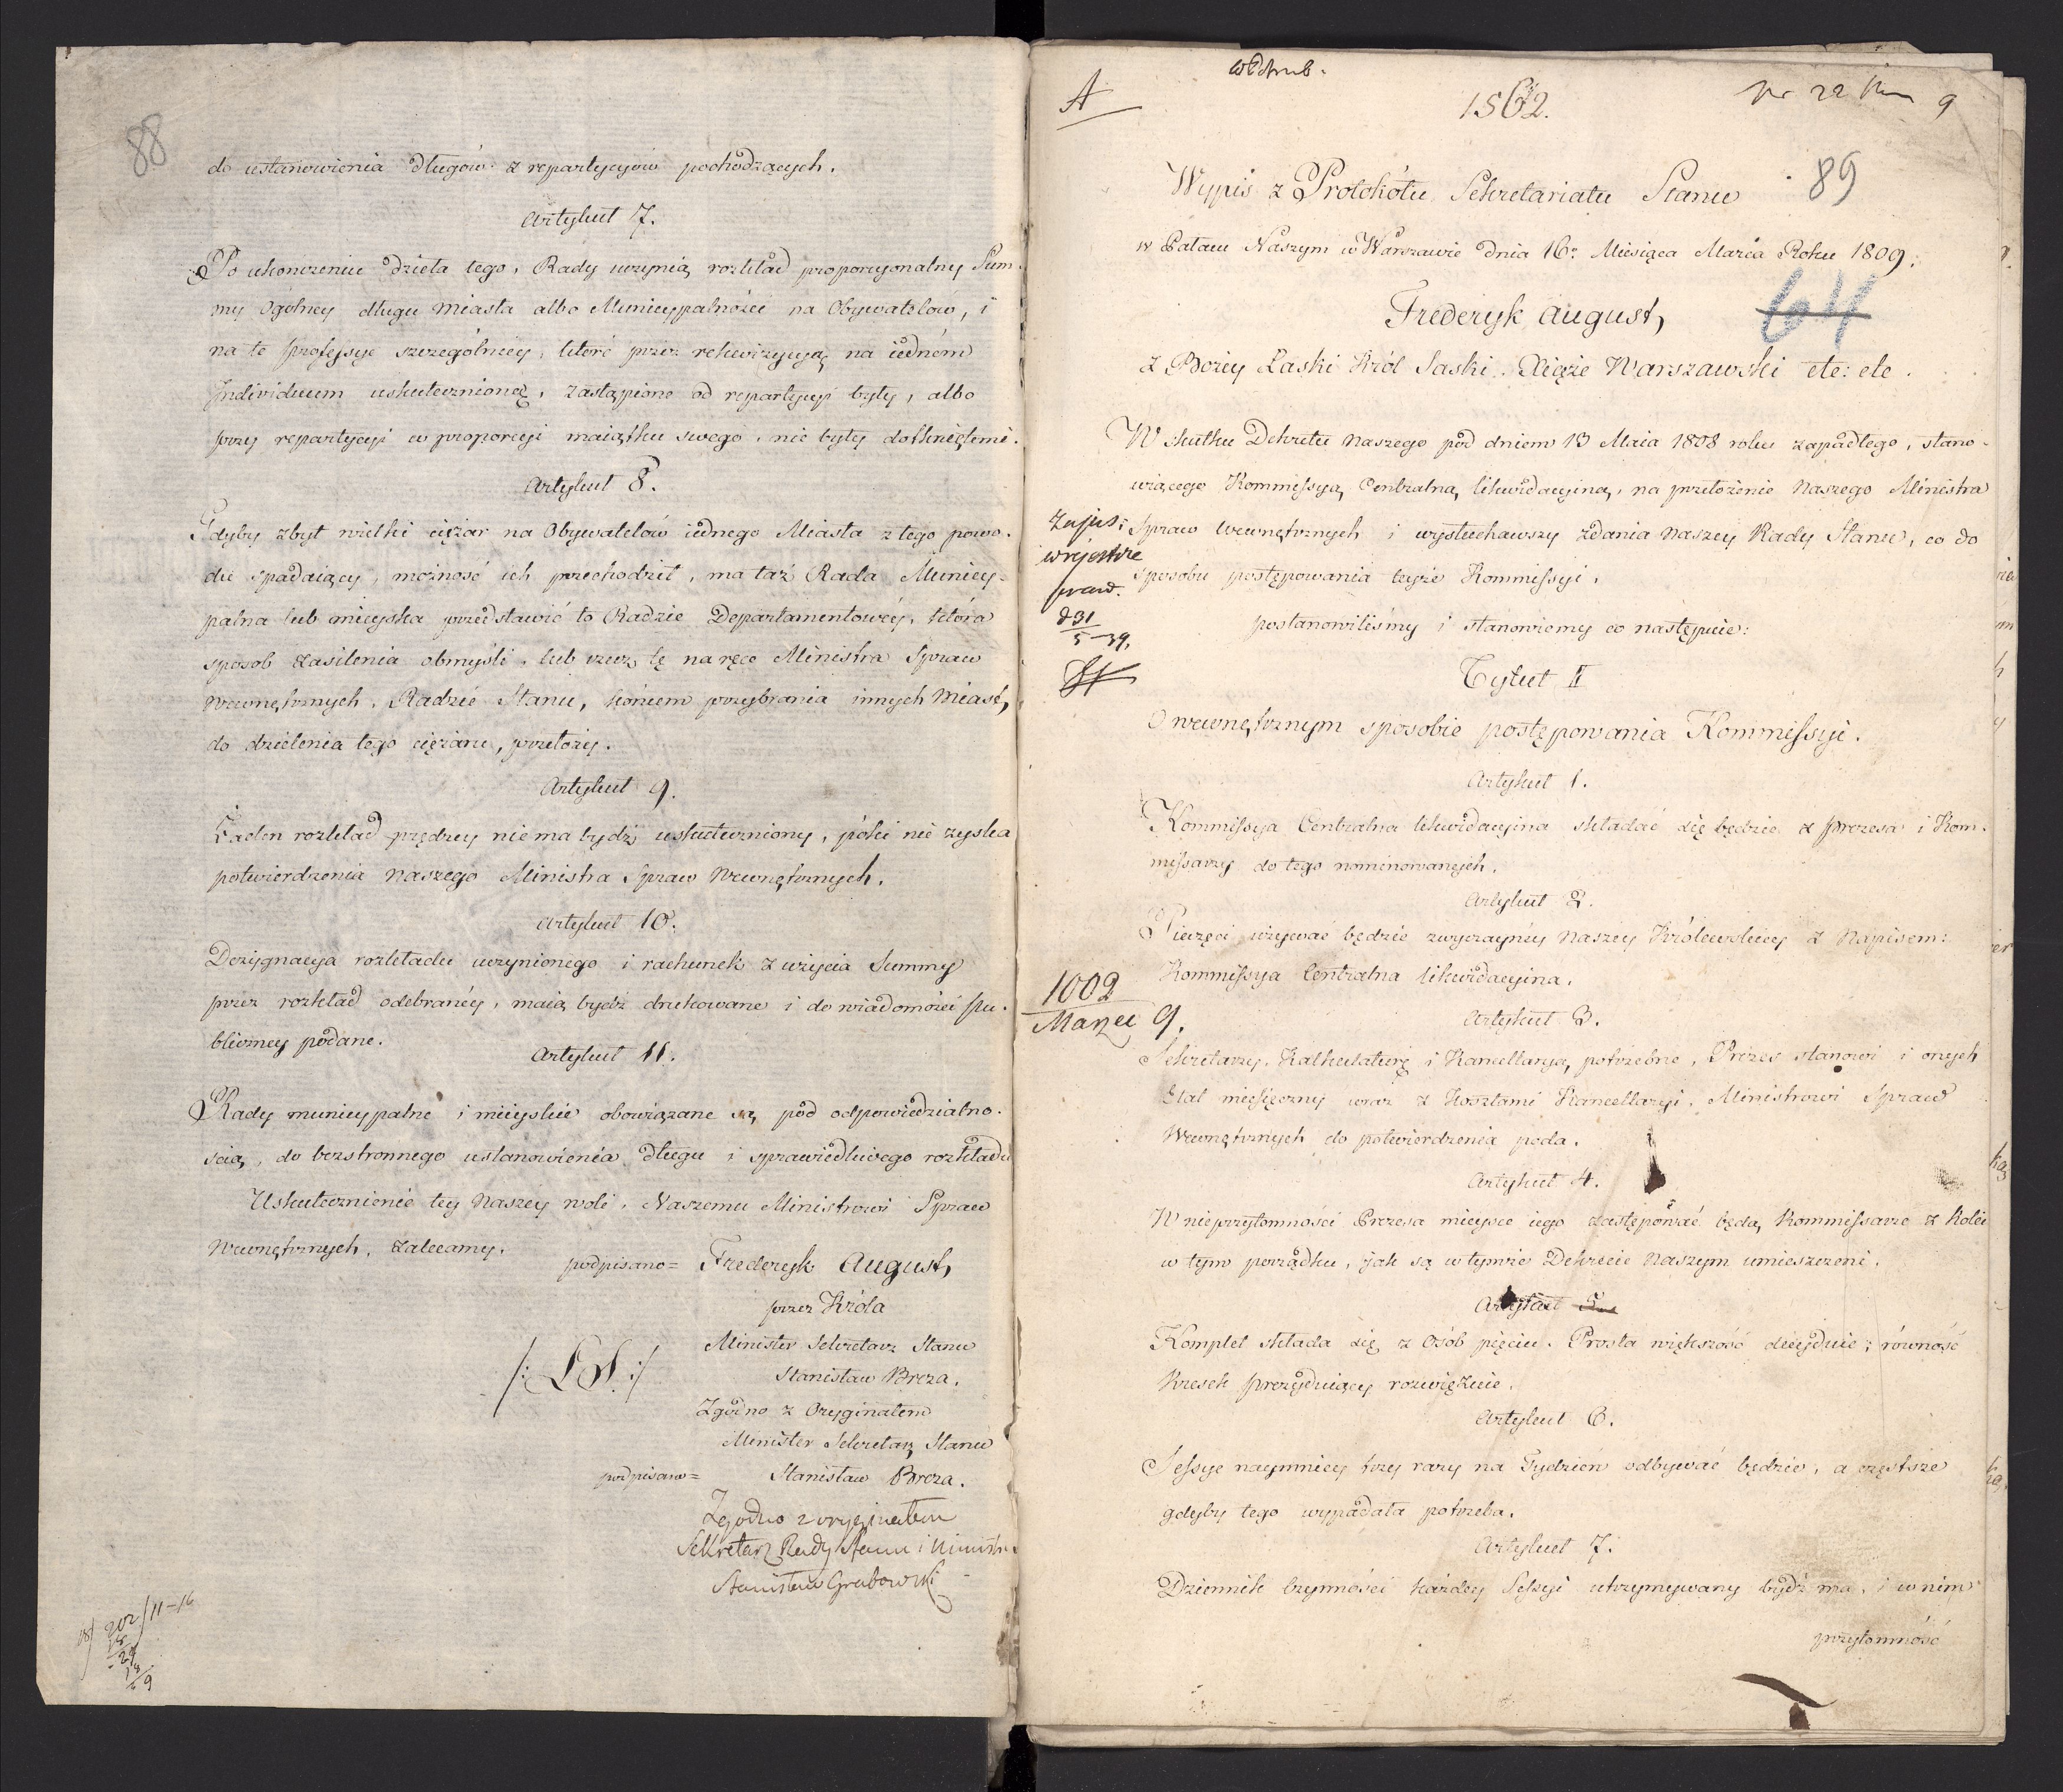 88
do ustanowienia długów z repartycyiów pochodzących.
Artykuł 7.
Po ukonczeniu dzieła tego, Rady uczynią rozkład proporcyonalny Sum-
my Ogólney długu Miasta albo Municypalności na Obywatelow, i
na te professye szczególniey, które przez rekwizycyią na iednem
Individuum uskutecznioną, zastąpione od repartycyi były, albo
przy repartycyi w proporcyi maiątku swego, nie były dotknięlemi.
Artykuł 8.
Gdyby zbyt wielki ciężar na Obywatelów iednego Miasta z tego powo-
du spadaiący, możność ich przechodził, ma taż Rada Municy-
palna lub mieyska przedstawić to Radzie Departamentowéy, która
sposob zasilenia obmyśli, lub rzecz tę na ręce Ministra Spraw
Wewnętrznych, Radzie Stanu, końcem przybrania innych Miast,
do dzielenia tego ciężaru, przełoży.
Artykuł 9.
Żaden rozkład prędzey niema bydź uskuteczniony, póki nie zyska
potwierdzenia Naszego Ministra Spraw Wewnętrznych.
Artykuł 10.
Dezygnacya rozkładu uczynionego i rachunek z użycia Summy
przez rozkład odebranéy, maią bydź drukowane i do wiadomości pu-
bliczney podane.
Artykuł 11.
Rady municypalne i mieyskie obowiązane są pod odpowiedzialno-
ścią, do bezstronnego ustanowienia długu i sprawiedliwego rozkładu
Uskutecznienie tey Naszey woli, Naszemu Ministrowi Spraw
Wewnętrznych, zalecamy.
podpisano= Frederyk August,
przez Króla
Minister Sekretarz Stanu
/: LS :/
Stanisław Breza.
Zgodno z Oryginałem
Minister Sekretarz Stanu
podpisano= Stanisław Breza.
Zgodno z oryginałem
Sekretarz Rady Stanu i Ministr.
Stanisław Grabowski
202/11-16
A
1562.
9
89
Wypis z Protokółu Sekretariatu Stanu
w Pałacu Naszym w Warszawie dnia 16º Miesiąca Marca Roku 1809.
64
Frederyk August,
z Bożey Łaski Król Saski. Xiąże Warszawski etc: etc.
W skutku Dekretu Naszego pod dniem 13 Maia 1808 roku zapadłego, stano-
wiącego Kommissyą Centralną likwidacyiną, na przełożenie Naszego Ministra
Spraw Wewnętrznych i wysłuchawszy zdania Naszey Rady Stanu, co do
sposobu postępowania teyże Kommissyi,
Zapis:
w rejestrze
praw.
d 31
5-39.
postanowiliśmy i stanowiemy co następuie:
Tytuł II
O wewnętrznym sposobie postępowania Kommissyi.
Artykuł 1.
Kommissya Centralna likwidacyina składać się będzie z prezesa i Kom-
missarzy do tego nominowanych.
Artykuł 2.
Pieczęci używać będzie zwyczaynéy Naszey Królewskiey z Napisem:
Kommissya Centralna likwidacyina.
1002
Marzec 9.
Artykuł 3.
Sekretarzy, Kalkulaturę i Kancellaryą, potrzebne, Prezes stanowi i onych
Etat miesięczny wraz z kosztami Kancellaryi, Ministrowi Spraw
Wewnętrznych do potwierdzenia poda.
Artykuł 4.
W nieprzytomności Prezesa mieysce iego zastępować będą Kommissarze z kolei
w tym porządku, jak są w tymże Dekrecie Naszym umieszczeni.
Artykuł 5.
Komplet składa się z Osób pięciu. Prosta większość decyduie; równość
Kresek prezyduiący rozwięzuie.
Artykuł 6.
Sessye naymniey trzy razy na Tydzien odbywać będzie, a częstsze
gdyby tego wypadała potrzeba.
Artykuł 7.
Dziennik bzynności każdey Sessyi utrzymywany bydź ma, i w nim
przytomność